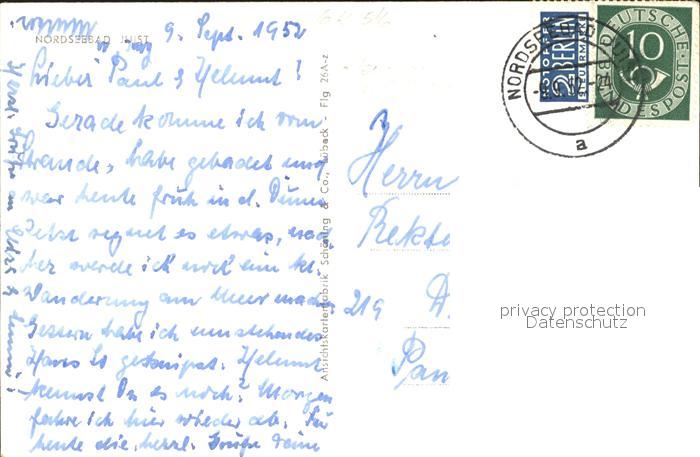 NORDSEEBAD JUIST
9. Sept. 1952
Lieber Paul & Helmut!
Gerade komme ich vom
Strande, habe gebadet und
war heute früh in d. Dünen
Jetzt regnet es etwas, nach
her werde ich noch ein kl.
Wanderung am Meer machen
Gestern habe ich umstehendes
Haus geknipst. Helmut
kennst Du es noch? Morgen
fahre ich hier wieder ab. Für
heute die herzl. Grüße Deine
Herzl. Grüße an
Ansichtskartenfabrik Schöning & Co., Lübeck - Flg 26A-z
Herrn
Rekto
219
Pan
NOTOPFER
2 BERLIN
STEUERMARKE
DEUTSCHE
10
BUNDESPOST
NORDSEEBAD JUIST
a
privacy protection
Datenschutz